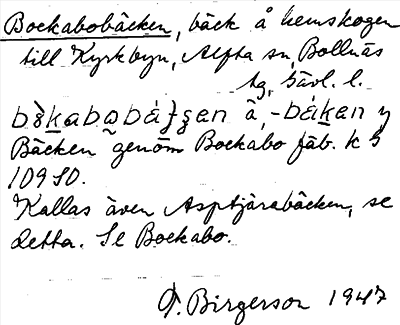 Bockabobäcken, bäck å hemskogen
till Kyrkbyn, Alfta sn, Bollnäs
tg, Gävl. l.
å, -båken
Bäcken genom Bockabo fäb. k 5
10950.
Kallas även Asptjärabäcken, se
detta. Se Bockabo.
Birgerson 1947